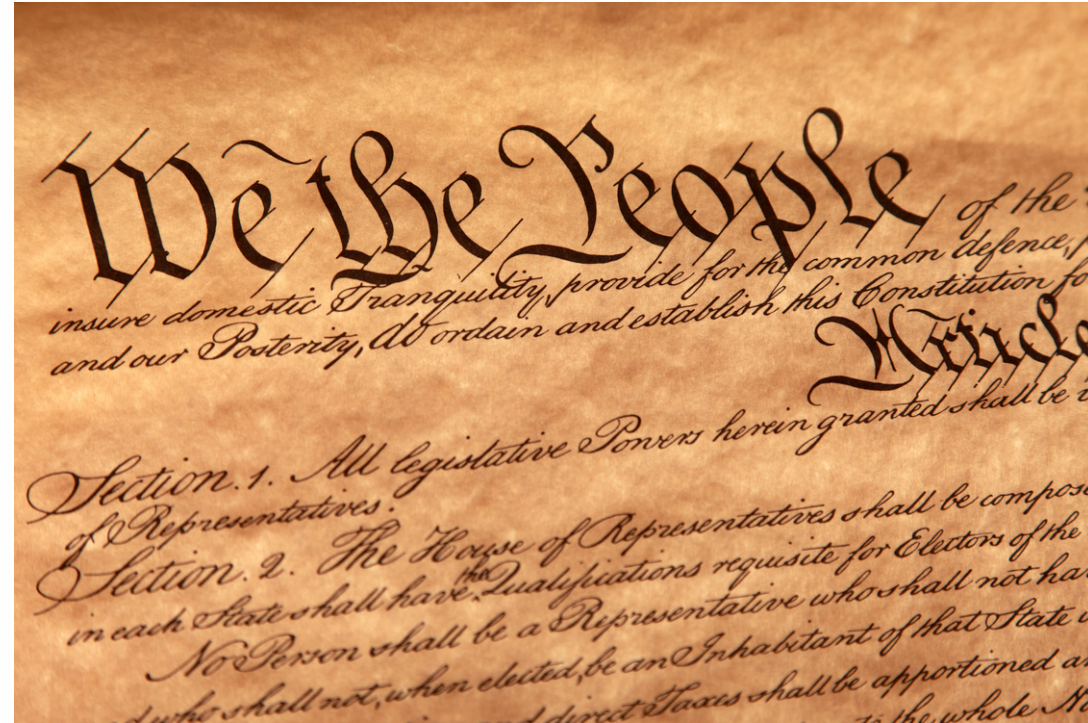 We the People of the
insure domestic Tranquility, provide for the common defence,
and our Posterity, do ordain and establish this Constitution fo
Article
Section. 1. All legislative Powers herein granted shall be v
of Representatives.
Section. 2. The House of Representatives shall be compos
in each State shall have the Qualifications requisite for Electors of the
No Person shall be a Representative who shall not ha
d who shall not, when elected, be an Inhabitant of that State i
and direct Taxes shall be apportioned a
to the whole N